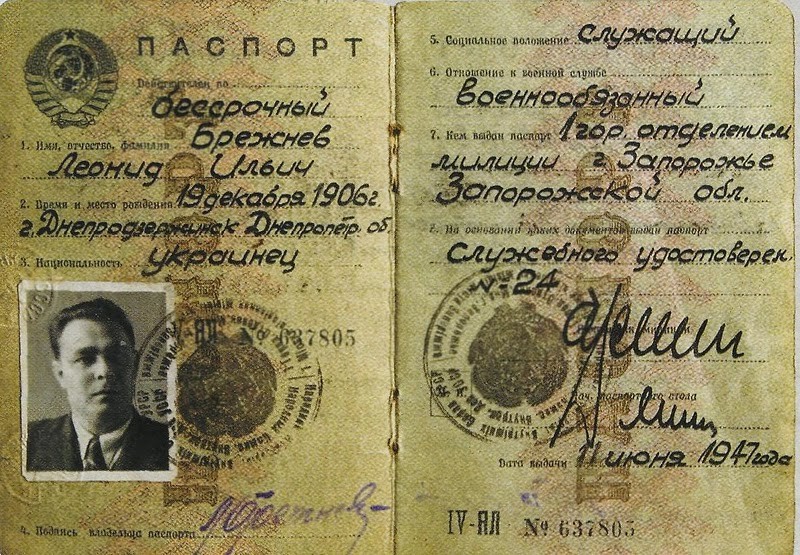 ПАСПОРТ
Действителен по
бессрочный
1. Имя, отчество, фамилия Брежнев
Леонид Ильич
2. Время и место рождения 19 декабря 1906 г.
г. Днепродзержинск Днепропетр. об.
3. Национальность украинец
IV-ЯЛ № 637805
4. Подпись владельца паспорта
5. Социальное положение служащий
6. Отношение к военной службе
военнообязанный
7. Кем выдан паспорт 1 гор. отделением
милиции г. Запорожье
Запорожской обл.
8. На основании каких документов выдан паспорт
служебного удостоверен.
V-24
Нач. паспортного стола
Дата выдачи 11 июня 1947 года
IV-ЯЛ № 637805